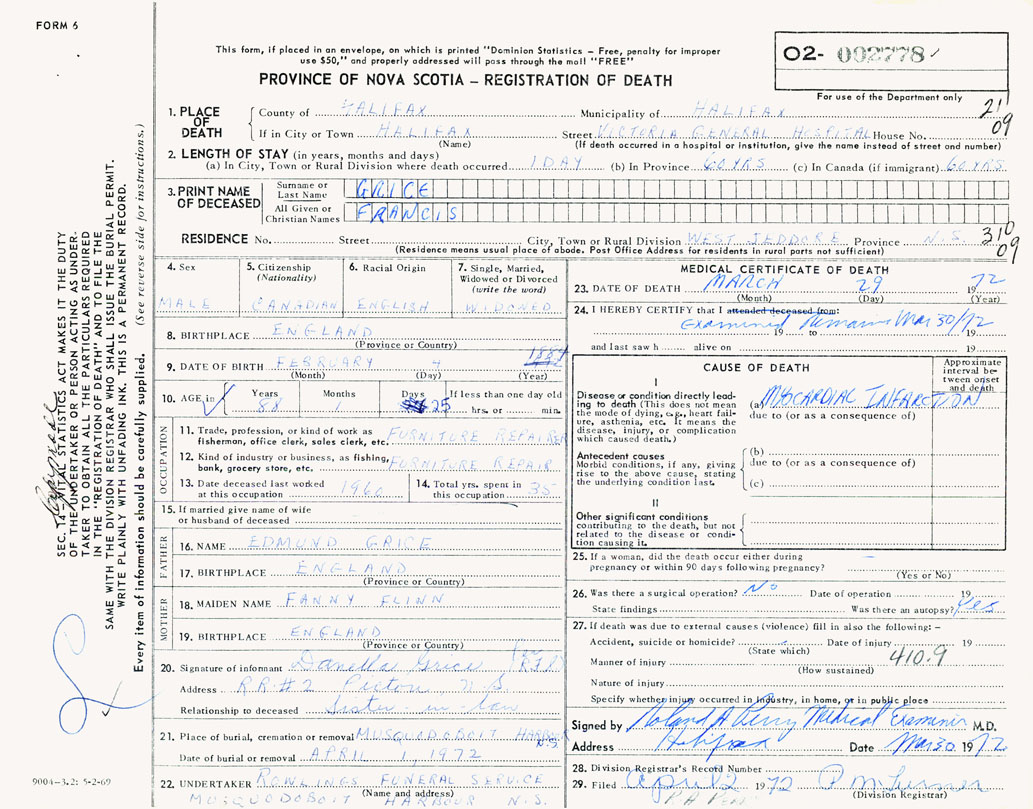 FORM 6
This form, if placed in an envelope, on which is printed "Dominion Statistics - Free, penalty for improper
use $50," and properly addressed will pass through the mail "FREE"
PROVINCE OF NOVA SCOTIA - REGISTRATION OF DEATH
02- 002778
For use of the Department only
21
09
1. PLACE OF DEATH
County of HALIFAX Municipality of HALIFAX
If in City or Town HALIFAX Street VICTORIA GENERAL HOSPITAL House No.
(Name) (If death occurred in a hospital or institution, give the name instead of street and number)
2. LENGTH OF STAY (in years, months and days)
(a) In City, Town or Rural Division where death occurred 1 DAY (b) In Province 60 YRS (c) In Canada (if immigrant) 60 YRS
3. PRINT NAME OF DECEASED
Surname or Last Name GRICE
All Given or Christian Names FRANCIS
RESIDENCE No. Street City, Town or Rural Division WEST JEDDORE Province N.S.
(Residence means usual place of abode. Post Office Address for residents in rural parts not sufficient)
310
09
4. Sex
MALE
5. Citizenship (Nationality)
CANADIAN
6. Racial Origin
ENGLISH
7. Single, Married, Widowed or Divorced (write the word)
WIDOWED
8. BIRTHPLACE ENGLAND
(Province or Country)
9. DATE OF BIRTH FEBRUARY 4 1884
(Month) (Day) (Year)
10. AGE in Years Months Days If less than one day old
88 1 25 hrs. or min.
OCCUPATION
11. Trade, profession, or kind of work as
fisherman, office clerk, sales clerk, etc. FURNITURE REPAIRER
12. Kind of industry or business, as fishing,
bank, grocery store, etc. FURNITURE REPAIR
13. Date deceased last worked
at this occupation 1960
14. Total yrs. spent in
this occupation 35
15. If married give name of wife
or husband of deceased
FATHER
16. NAME EDMUND GRICE
17. BIRTHPLACE ENGLAND
(Province or Country)
MOTHER
18. MAIDEN NAME FANNY FLINN
19. BIRTHPLACE ENGLAND
(Province or Country)
20. Signature of informant Danella Grice
Address RR#2 Pictou N S
Relationship to deceased Sister-in-law
21. Place of burial, cremation or removal MUSQUODOBOIT HARBOUR N.S.
Date of burial or removal APRIL 1, 1972
22. UNDERTAKER ROWLINGS FUNERAL SERVICE
(Name and address)
MUSQUODOBOIT HARBOUR N.S.
MEDICAL CERTIFICATE OF DEATH
23. DATE OF DEATH MARCH 29 1972
(Month) (Day) (Year)
24. I HEREBY CERTIFY that I attended deceased from:
Examined Remains Mar 30/72
19 19
and last saw h alive on 19
CAUSE OF DEATH
Approximate interval between onset and death
I
Disease or condition directly leading to death (This does not mean the mode of dying, e.g., heart failure, asthenia, etc. It means the disease, injury, or complication which caused death.)
(a) MYOCARDIAC INFARCTION
due to (or as a consequence of)
Antecedent causes
Morbid conditions, if any, giving rise to the above cause, stating the underlying condition last.
(b)
due to (or as a consequence of)
(c)
II
Other significant conditions
contributing to the death, but not related to the disease or condition causing it.
25. If a woman, did the death occur either during
pregnancy or within 90 days following pregnancy? —
(Yes or No)
26. Was there a surgical operation? No Date of operation 19
State findings Was there an autopsy? Yes
27. If death was due to external causes (violence) fill in also the following: -
Accident, suicide or homicide? Date of injury 19
(State which)
410.9
Manner of injury
(How sustained)
Nature of injury
Specify whether injury occurred in industry, in home, or in public place
Signed by Roland A Perry Medical Examiner M.D.
Address Halifax Date Mar 30 1972
28. Division Registrar's Record Number
29. Filed April 2 1972
(Division Registrar)
SEC. 14 - VITAL STATISTICS ACT MAKES IT THE DUTY
OF THE UNDERTAKER OR PERSON ACTING AS UNDER-
TAKER TO OBTAIN ALL THE PARTICULARS REQUIRED
IN THE "REGISTRATION OF DEATH" AND TO FILE THE
SAME WITH THE DIVISION REGISTRAR WHO SHALL ISSUE THE BURIAL PERMIT.
WRITE PLAINLY WITH UNFADING INK. THIS IS A PERMANENT RECORD.
Every item of information should be carefully supplied. (See reverse side for instructions.)
9004-3.2: 5-2-69